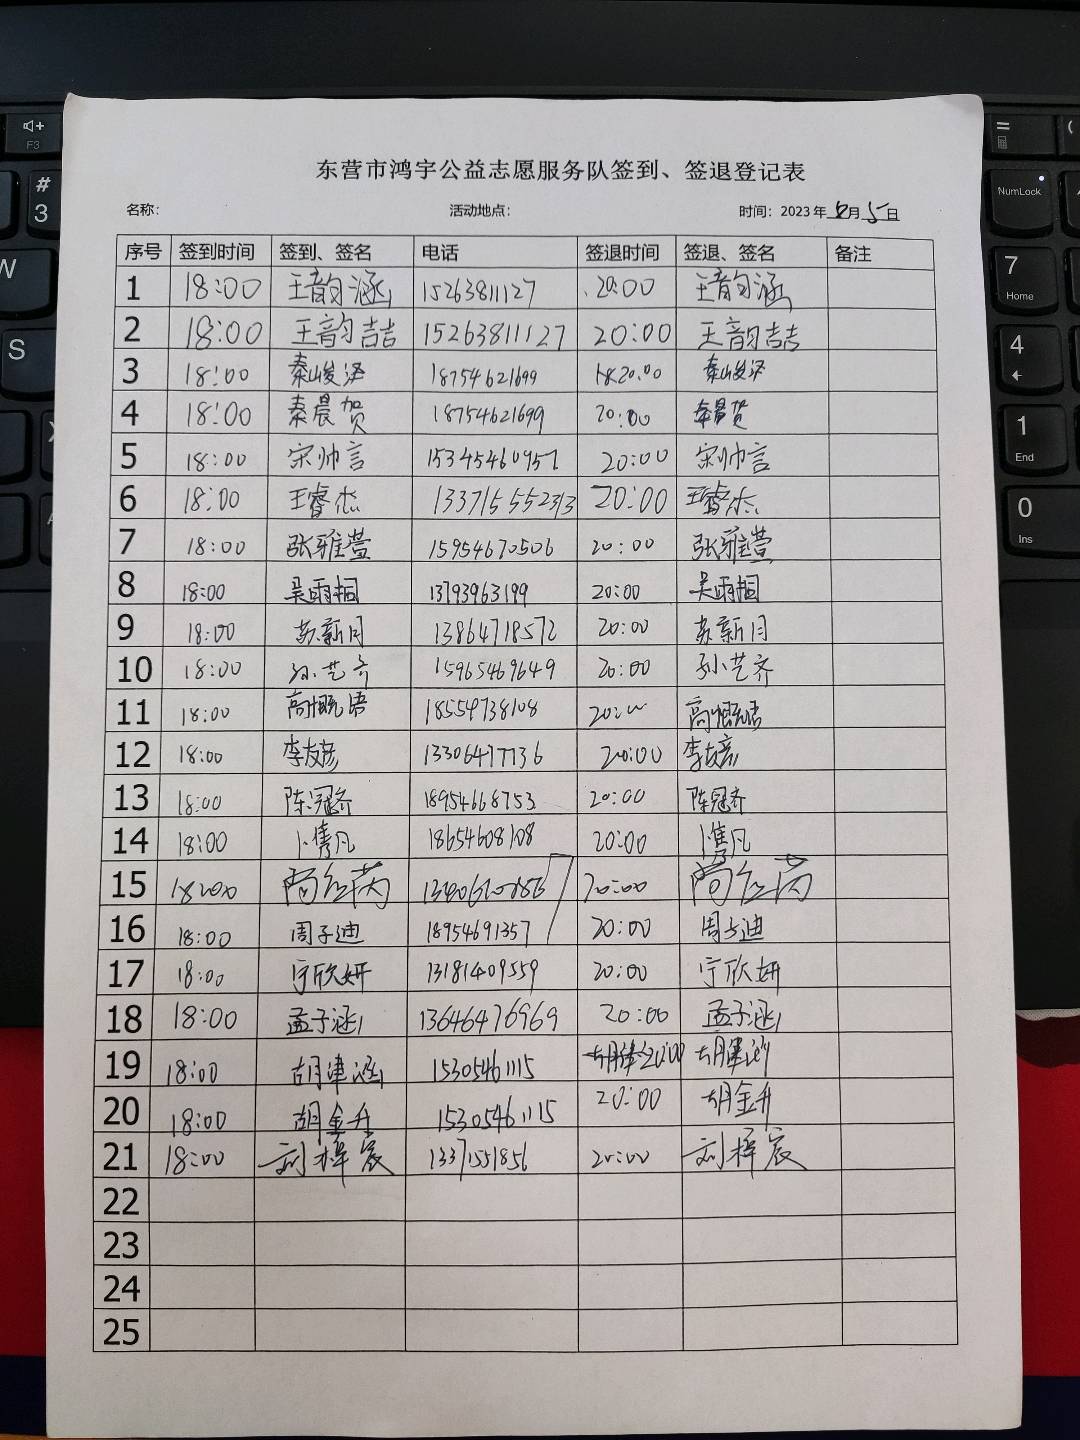 东营市鸿宇公益志愿服务队签到、签退登记表
名称： 活动地点： 时间：2023年8月5日
序号 签到时间 签到、签名 电话 签退时间 签退、签名 备注
1 18:00 王韵涵 15263811127 20:00 王韵涵
2 18:00 王韵喆 15263811127 20:00 王韵喆
3 18:00 秦峻泽 18754621699 20:00 秦峻泽
4 18:00 秦晨贺 18754621699 20:00 秦晨贺
5 18:00 宋帅言 15345460957 20:00 宋帅言
6 18:00 王睿杰 13371555233 20:00 王睿杰
7 18:00 张雅萱 15954670506 20:00 张雅萱
8 18:00 吴雨桐 13793963199 20:00 吴雨桐
9 18:00 苏新月 13864718572 20:00 苏新月
10 18:00 孙艺齐 15965469649 20:00 孙艺齐
11 18:00 高慨语 18554738108 20:00 高慨语
12 18:00 李友彦 13306477736 20:00 李友彦
13 18:00 陈冠齐 18954668753 20:00 陈冠齐
14 18:00 卜隽凡 18654608108 20:00 卜隽凡
15 18:00 20:00
16 18:00 周子迪 18954691357 20:00 周子迪
17 18:00 宁欣妍 13181409559 20:00 宁欣妍
18 18:00 孟子涵 13646476969 20:00 孟子涵
19 18:00 胡津涵 15305461115 20:00 胡津涵
20 18:00 胡金升 15305461115 20:00 胡金升
21 18:00 刘梓宸 13371551856 20:00 刘梓宸
22
23
24
25
F3
#
3
W
S
=
NumLock
7
Home
4
1
End
0
Ins